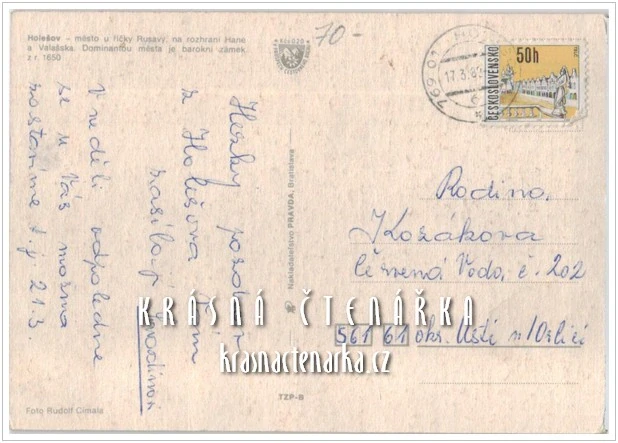 Holešov – město u říčky Rusavy, na rozhraní Hané
a Valašska. Dominantou města je barokní zámek
z r. 1650
HOLEŠOV
70-
769 01
17.3.
50h
ČESKOSLOVENSKO
Hezký pozdrav
z Holešova Vám
zasílají
V neděli odpoledne
se u Vás možná
zastavíme t.j. 21.3.
Nakladatelstvo PRAVDA, Bratislava
Rodina
Kozákova
Červená Voda č. 202
561 61 okr. Ústí n/Orlicí
KRÁSNÁ ČTENÁŘKA
krasnactenarka.cz
TZP-B
Foto Rudolf Cimala